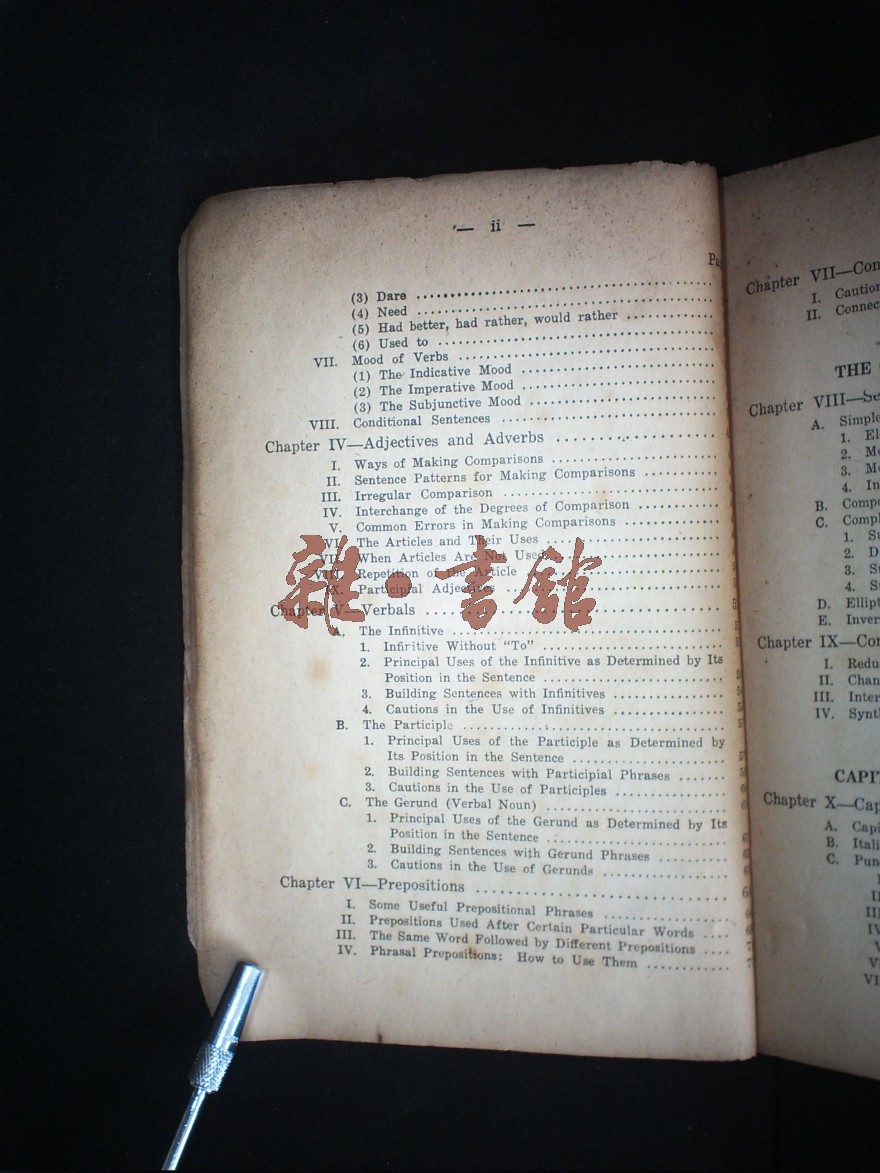 — ii —
(3) Dare
(4) Need
(5) Had better, had rather, would rather
(6) Used to
VII. Mood of Verbs
(1) The Indicative Mood
(2) The Imperative Mood
(3) The Subjunctive Mood
VIII. Conditional Sentences
Chapter IV—Adjectives and Adverbs
I. Ways of Making Comparisons
II. Sentence Patterns for Making Comparisons
III. Irregular Comparison
IV. Interchange of the Degrees of Comparison
V. Common Errors in Making Comparisons
VI. The Articles and Their Uses
VII. When Articles Are Not Used
VIII. Repetition of the Article
IX. Participial Adjectives
Chapter V—Verbals
A. The Infinitive
1. Infiritive Without "To"
2. Principal Uses of the Infinitive as Determined by Its
Position in the Sentence
3. Building Sentences with Infinitives
4. Cautions in the Use of Infinitives
B. The Participle
1. Principal Uses of the Participle as Determined by
Its Position in the Sentence
2. Building Sentences with Participial Phrases
3. Cautions in the Use of Participles
C. The Gerund (Verbal Noun)
1. Principal Uses of the Gerund as Determined by Its
Position in the Sentence
2. Building Sentences with Gerund Phrases
3. Cautions in the Use of Gerunds
Chapter VI—Prepositions
I. Some Useful Prepositional Phrases
II. Prepositions Used After Certain Particular Words
III. The Same Word Followed by Different Prepositions
IV. Phrasal Prepositions: How to Use Them
Chapter VII—
I.
II.
THE
Chapter VIII—
A.
1.
2.
3.
4.
B.
C.
1.
2.
3.
4.
D.
E.
Chapter IX—
I.
II.
III.
IV.
Chapter X—
A.
B.
C.
雜·書館